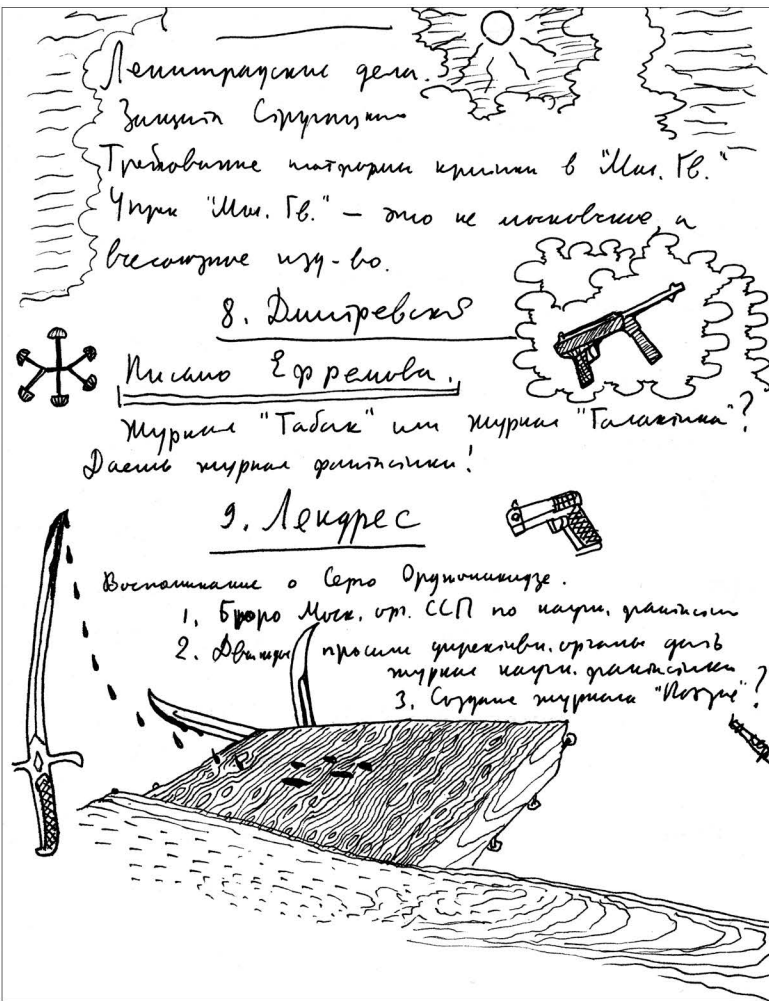 Ленинградские дела.
Защита Стругацких
Требование платформы критики в "Мол. Гв."
Упрек "Мол. Гв." — это не московское, а
всесоюзное изд-во.
8. Дмитревский
Письмо Ефремова.
Журнал "Табак" или журнал "Галактика"?
Даешь журнал фантастики!
9. Лендрес
Воспоминание о Серго Орджоникидзе.
1. Бюро Моск. орг. ССП по научн. фантастике
2. Дважды просили директивн. органы дать
журнал научн. фантастики
3. Создание журнала "Поэзие"?